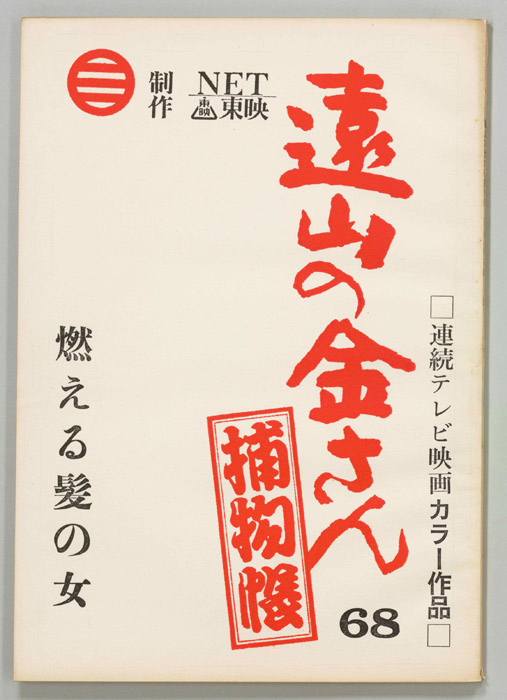 □連続テレビ映画カラー作品□
遠山の金さん
捕物帳
68
NET
東映
東映
制作
燃える髪の女